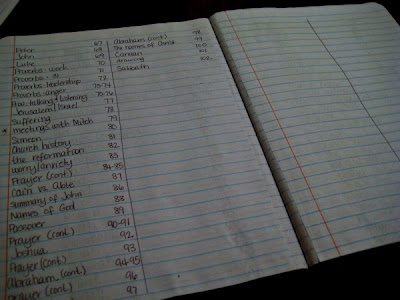 Peter 67
John 68
Luke 69
Proverbs- work 70
Proverbs- 31 71
Proverbs- leadership 72
Proverbs- anger 73-74
Prov. talking & listening 75-76
Jerusalem/Israel 77
Suffering 78
meetings with Mitch 79
Simeon 80
Church history 81
the reformation 82
worry/anxiety 83
Prayer (cont.) 84-85
Cain vs. Able 87
Summary of John 86
Names of God 88
Passover 89
Prayer (cont.) 90-91
Joshua 92
Prayer (cont.) 93
Abraham (cont.) 94-95
prayer (cont.) 96
97
Abraham (cont.) 98
The names of Christ 99
Canaan 100
drawing 101
Sabbath 102